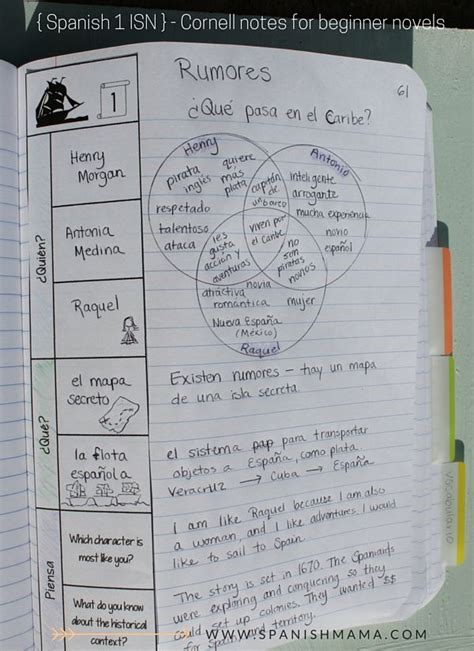 { Spanish 1 ISN } - Cornell notes for beginner novels
61
Rumores
¿Qué pasa en el Caribe?
1
¿Quién?
Henry
Morgan
Antonia
Medina
Raquel
Henry
pirata
inglés
quiere
más
plata
respetado
talentoso
ataca
capitán
de
un barco
Antonio
inteligente
arrogante
mucha experiencia
novio
español
viven por
el Caribe
les
gusta
acción y
aventuras
no
son
piratas
novios
novia
atractiva
romántica
mujer
Nueva España
(México)
Raquel
¿Qué?
el mapa
secreto
Existen rumores — hay un mapa
de una isla secreta.
la flota
española
el sistema pap para transportar
objetos a España, como plata
Veracruz → Cuba → España
Piensa
Which character is
most like you?
I am like Raquel because I am also
a woman, and I like adventures. I would
like to sail to Spain.
What do you know
about the historical
context?
The story is set in 1670. The Spaniards
were exploring and conquering so they
could set up colonies. They wanted $$
for Spain and territory.
Vocabulario
WWW.SPANISHMAMA.COM